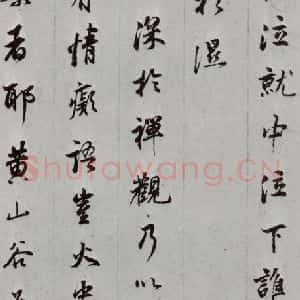 泣就中泣下誰
衫濕
深於禪觀乃以
情癡語豈火
者耶黃山谷
Shufawang.CN